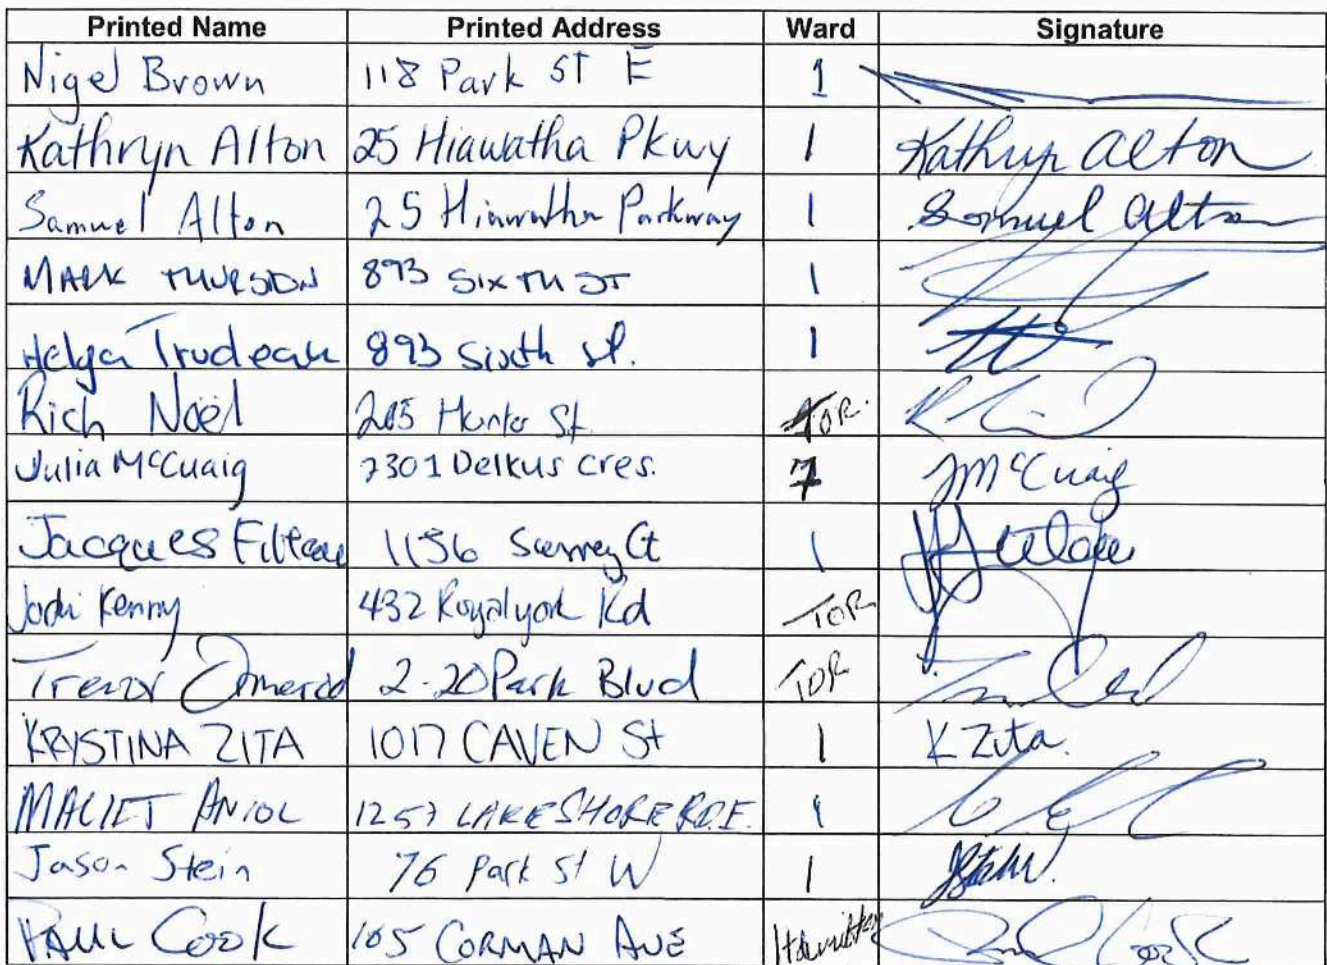 Printed Name Printed Address Ward Signature
Nigel Brown 118 Park ST E 1
Kathryn Alton 25 Hiawatha Pkwy 1 Kathryn Alton
Samuel Alton 25 Hiawatha Parkway 1 Samuel Alton
MARK THURSDN 893 SIXTH ST 1
Helga Trudeau 893 Sixth st. 1
Rich Noël 205 Hunter St. TOR.
Julia McCuaig 7301 Delkus cres. 7 JMcCuaig
Jacques Filteau 1156 Surrey Ct 1
Jodi Kenny 432 Royalyork Rd TOR
Trevor Ormerod 2-20 Park Blvd TOR
KRYSTINA ZITA 1017 CAVEN St 1 K Zita.
ANIOL 1257 LAKESHORE RD.E. 1
Jason Stein 76 Park St W 1
PAUL COOK 105 CORMAN AVE Hamilton Paul Cook